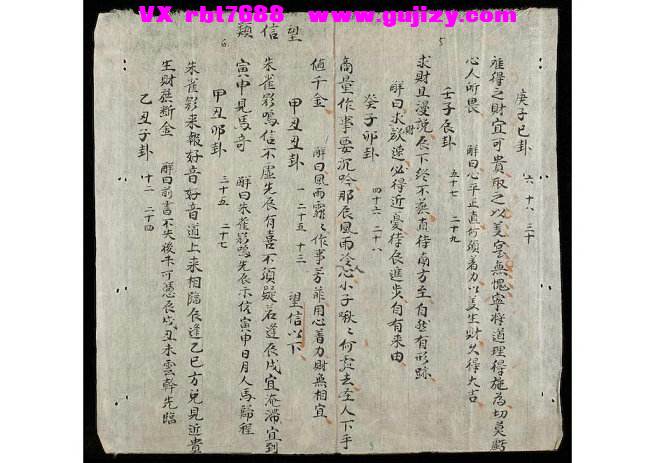 VX rbt7688   www.gujizy.com
望信類
5
6
庚子巳卦 六 十八 三十
难得之財宜可貴取之以義宜無愧寧將道理得施為切莫虧
心人所畏 解曰心平正直何須着力以義生財久得大吉
壬子辰卦 五十七 二十九
求財且漫説辰下終不無直待南方至自然有形跡
解曰求欲速必得近憂待辰進步自有来由
癸子卯卦 四十六 二十八
商量作事要沉吟那辰風雨冷心小子啾〻何處去至人下手
値千金 解曰風雨霖〻作事芳菲用心着力財無相宜
甲丑丑卦 一 二十五 十三 望信以下
朱雀影鳴信不虛先辰有喜不須疑若逢辰戌宜淹滞宜到
寅申見馬奇 解曰朱雀影鳴先辰示信寅申日月人馬歸程
甲丑卯卦 三十五 二十七
朱雀影来報好音好音道上来相臨辰逢乙巳方兌見近貴
生財無断金 解曰前書不失後未可憑辰戌丑未雲軿先臨
乙丑子卦 十二 二十四